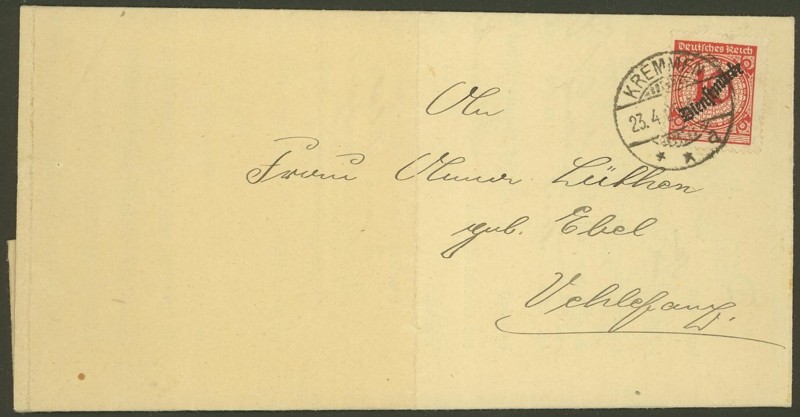 Deutsches Reich
10
Dienstmarke
KREMMEN
23. 4.
a
An
Frau Anna Lüthen
geb. Ebel
Vehlefanz.